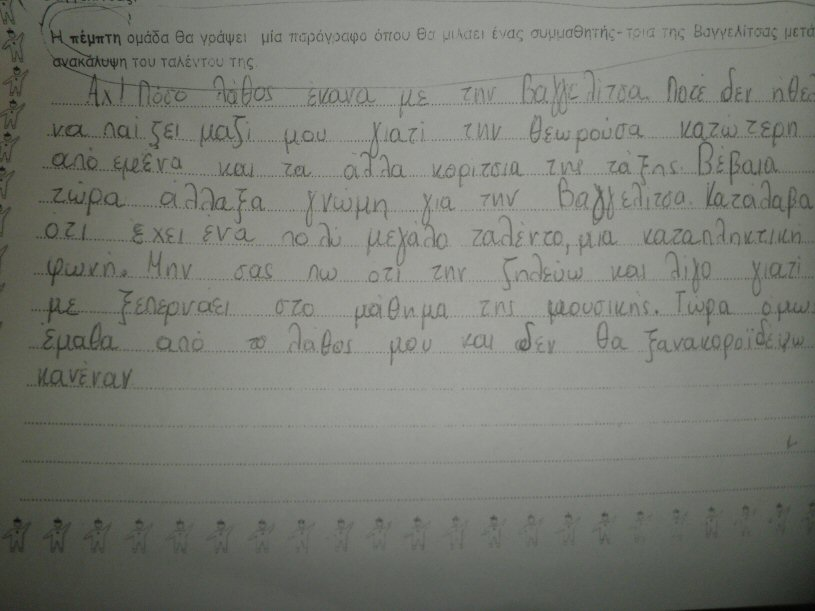 Η πέμπτη ομάδα θα γράψει μία παράγραφο όπου θα μιλάει ένας συμμαθητής- τρια της Βαγγελίτσας μετά
ανακάλυψη του ταλέντου της.
Αχ! Πόσο λάθος έκανα με την Βαγγελίτσα. Ποτέ δεν ήθελ
να παίξει μαζί μου γιατί την θεωρούσα κατώτερη
από εμένα και τα άλλα κορίτσια της τάξης. Βέβαια
τώρα άλλαξα γνώμη για την Βαγγελίτσα. Κατάλαβα
ότι έχει ένα πολύ μεγάλο ταλέντο, μια καταπληκτική
φωνή. Μην σας πω ότι την ζηλεύω και λίγο γιατί
με ξεπερνάει στο μάθημα της μουσικής. Τώρα όμω
έμαθα από το λάθος μου και δεν θα ξανακοροϊδέψω
κανέναν